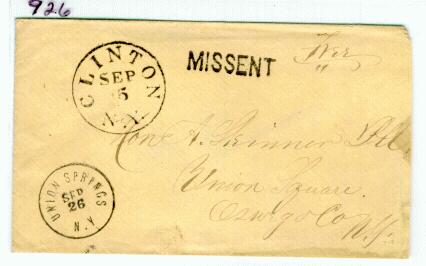 926
CLINTON
SEP
15
N.Y.
MISSENT
Free
"
Hon A. Skinner
Union Square
Oswego Co
N.Y.
UNION SPRINGS
SEP
26
N.Y.